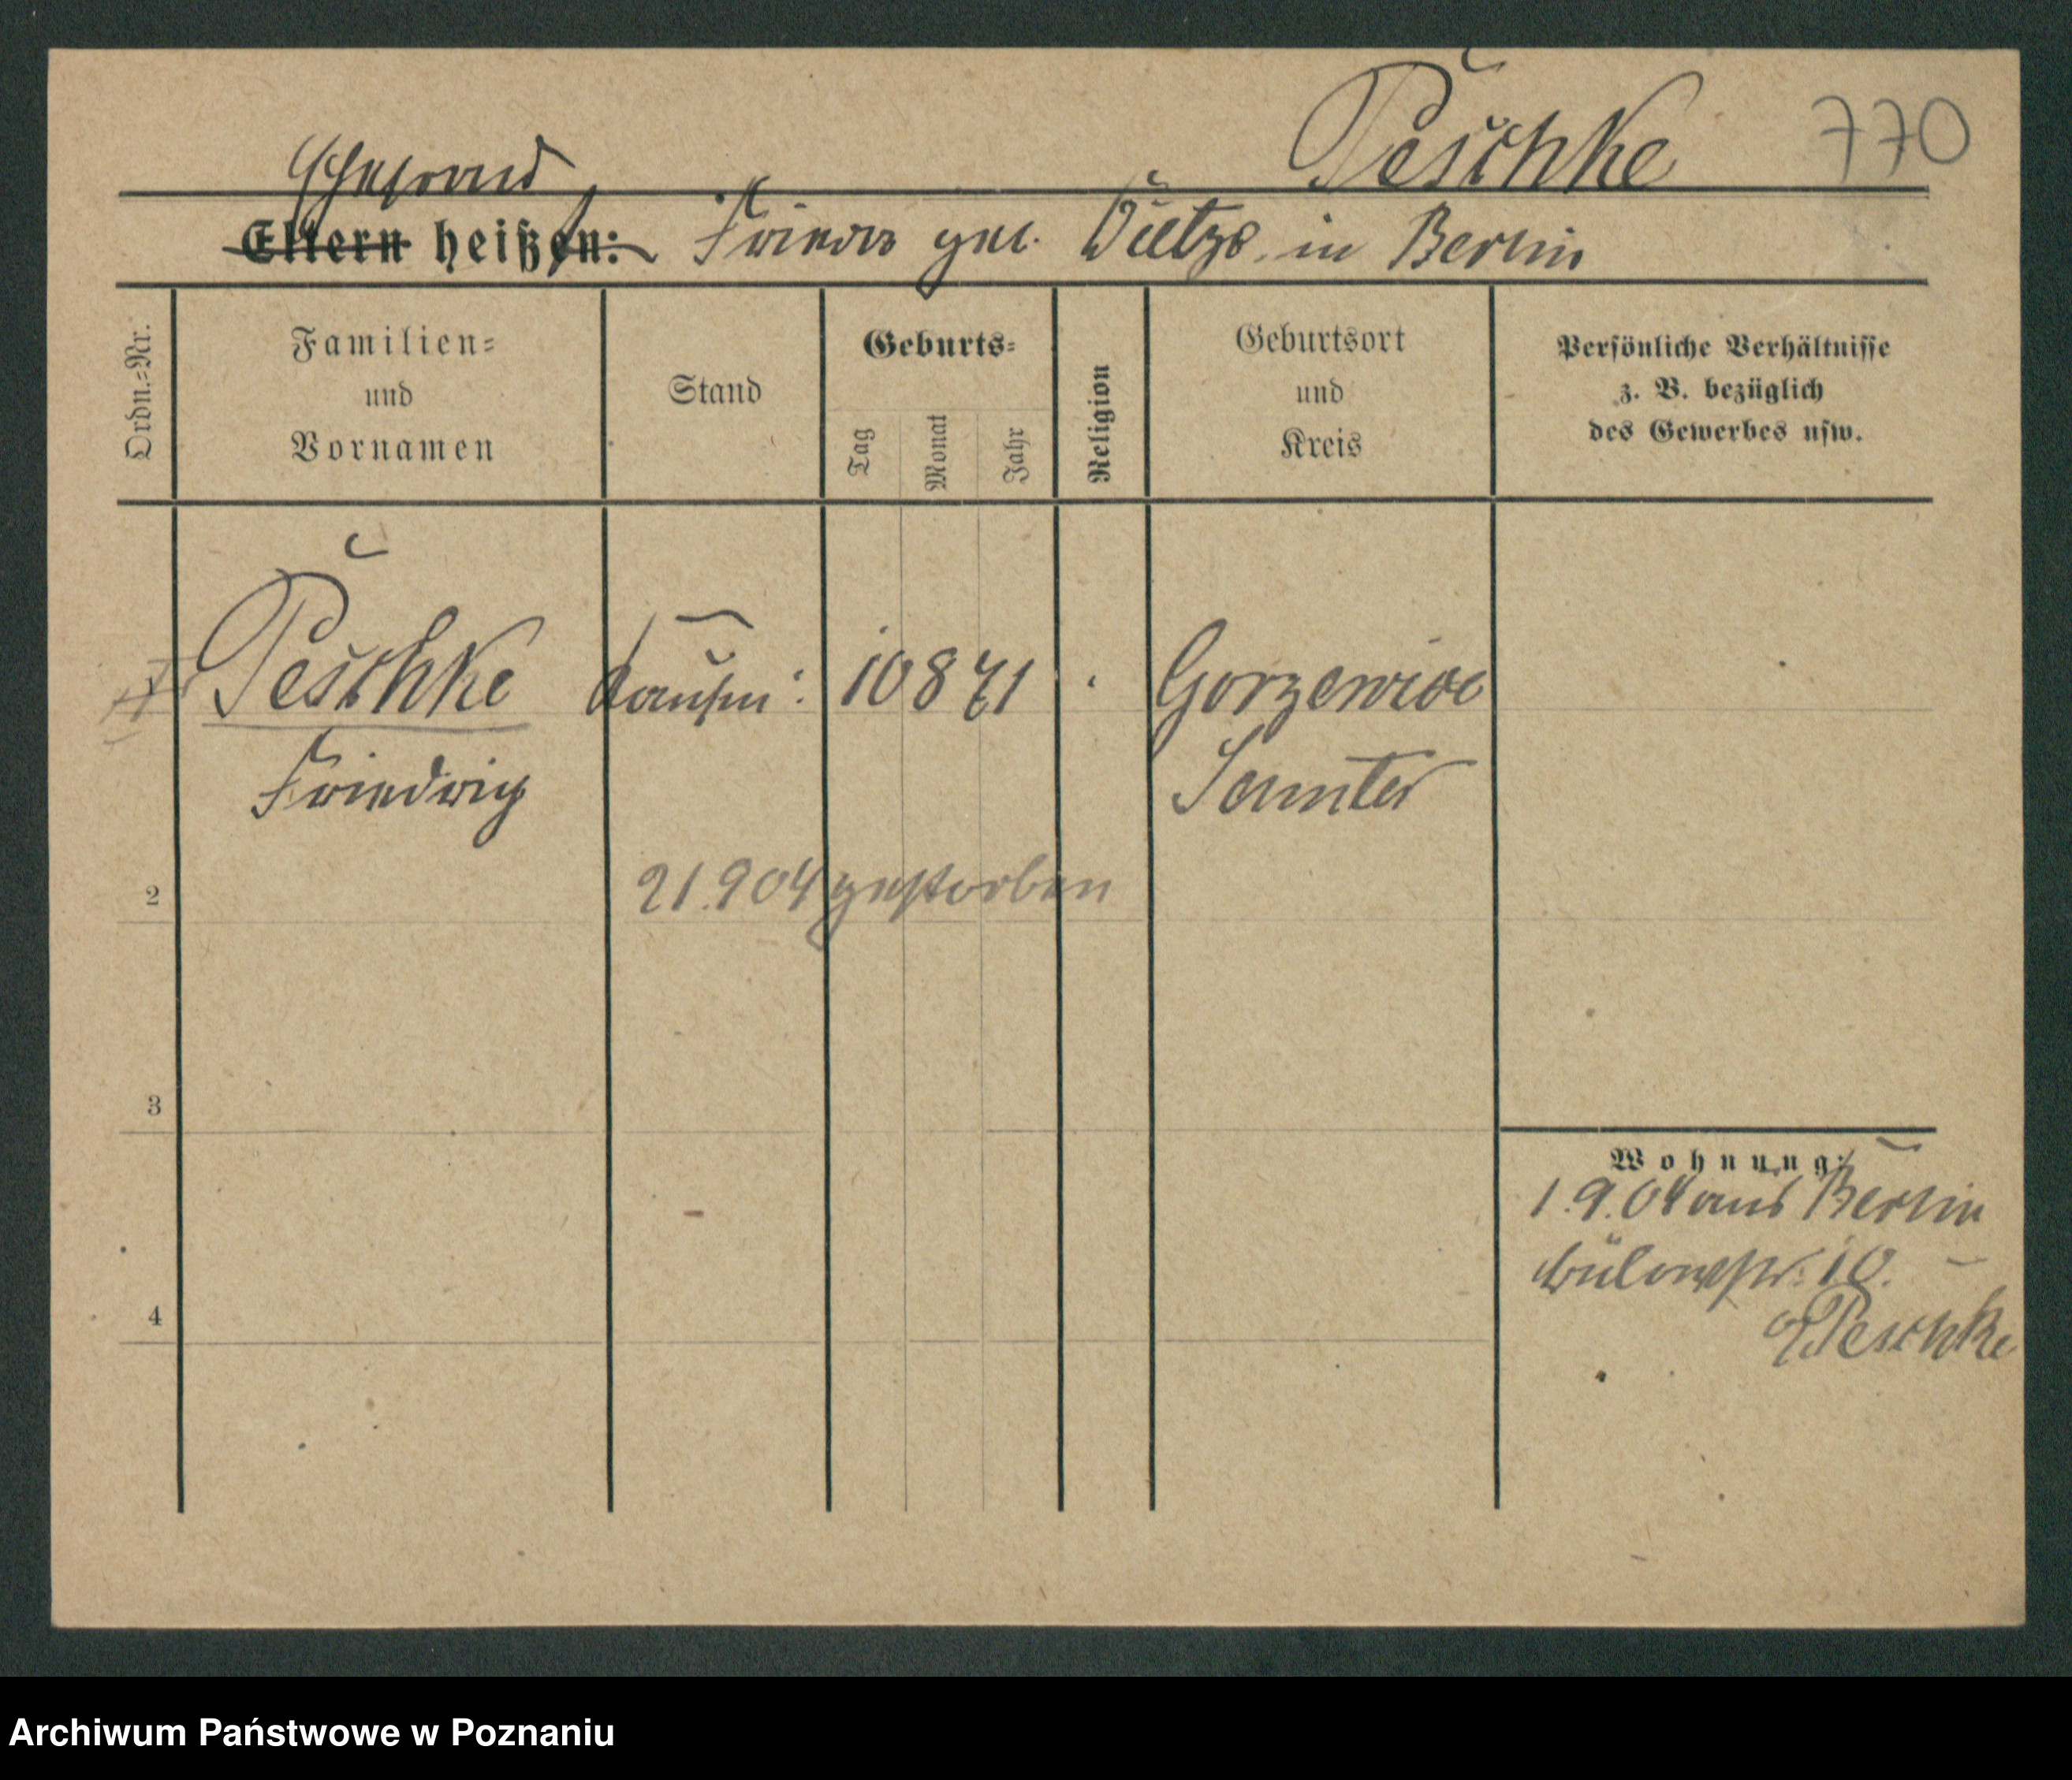 Peschke 770
Ehefrau
Eltern heißen: Frieda geb. Dietze in Berlin
Ordn.=Nr.
Familien=
und
Vornamen
Stand
Geburts=
Tag
Monat
Jahr
Religion
Geburtsort
und
Kreis
Persönliche Verhältnisse
z. B. bezüglich
des Gewerbes usw.
Peschke
Kaufm:
10 8 71
Friedrich
Samter
2
21.904 gestorben
3
Wohnung:
1.9.04 aus Berlin
Bülowstr. 10.
Peschke
4
Archiwum Państwowe w Poznaniu